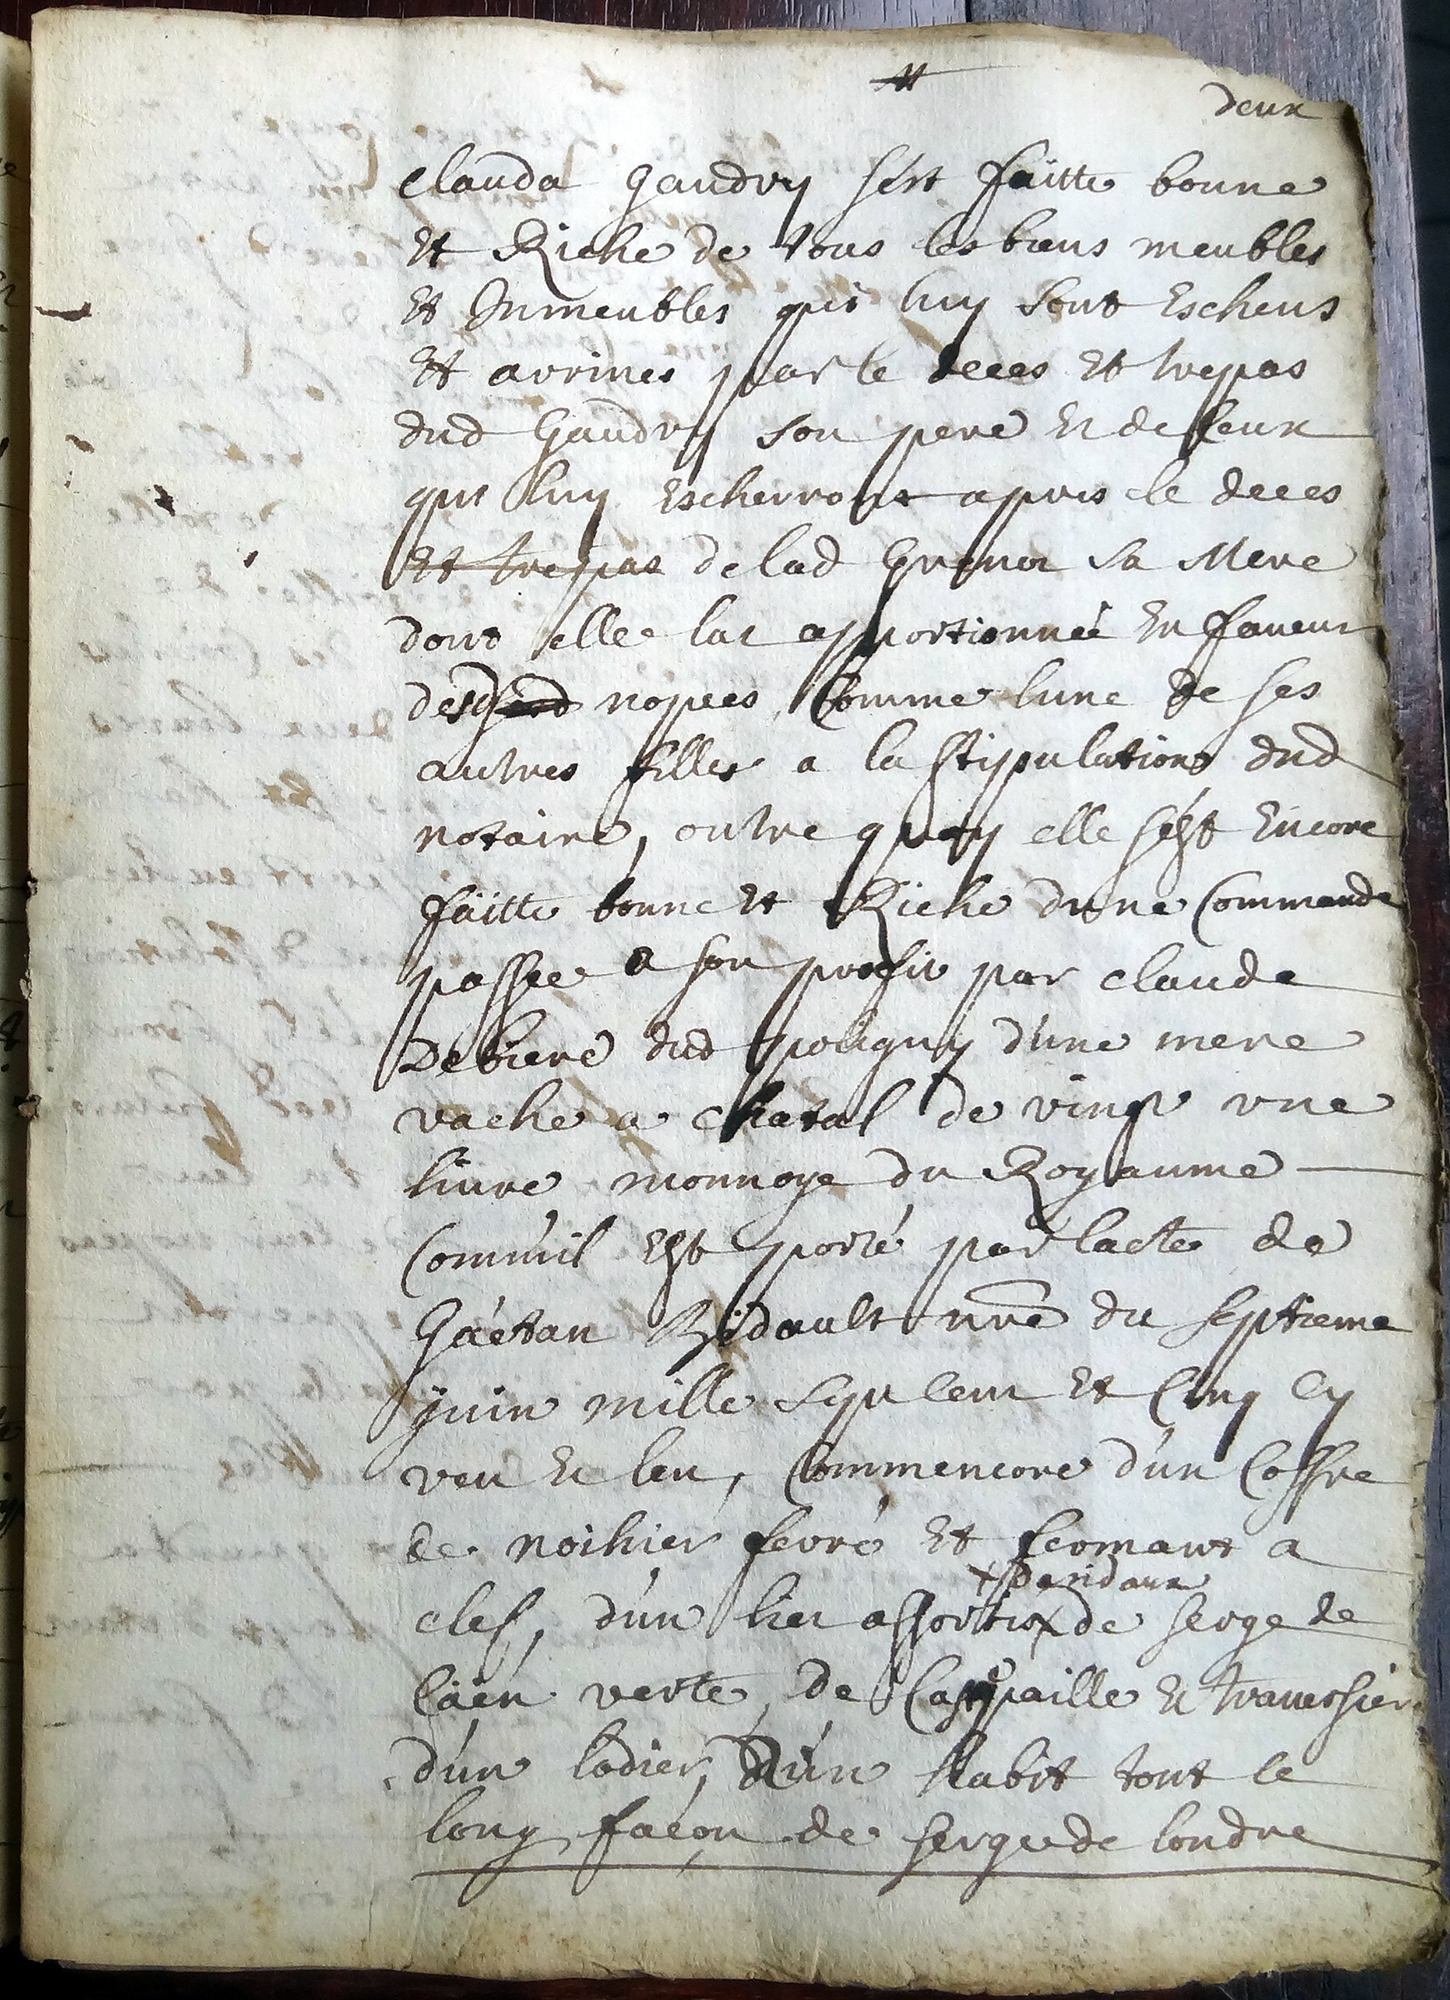 deux
Clauda Gaudry s'est faitte bonne
et Riche de tous les biens meubles
et Immeubles qui luy sont Escheus
et arrives par le deces et trepas
dud Gaudry son pere et de ceux
qui luy Escherront apres le deces
et trepas de lad sa Mere
dont elle la apportionnée En faveur
desd nopces Comme lune de ses
autres filles a la stipulation dud
notaire, outre quoy elle s'est Encore
faitte bonne et Riche dune Commande
passee a son profit par claude
Debiere dud pouguy d'une mere
vache a chatal de vingt une
livre monnoye du Royaume
Comm'il Est porté par lacte de
Gáetan Bédault nre du septieme
juin mille sept cent et Cinq Cy
veu et leu, Commencore d'un Coffre
de noihier ferré et fermant a
+ Pendaux
clef, d'un lict assortio + de serge de
Câen verte, de Caspaille et traverssier
d'un lodier, D'un habit tout le
long façon de serge de londre